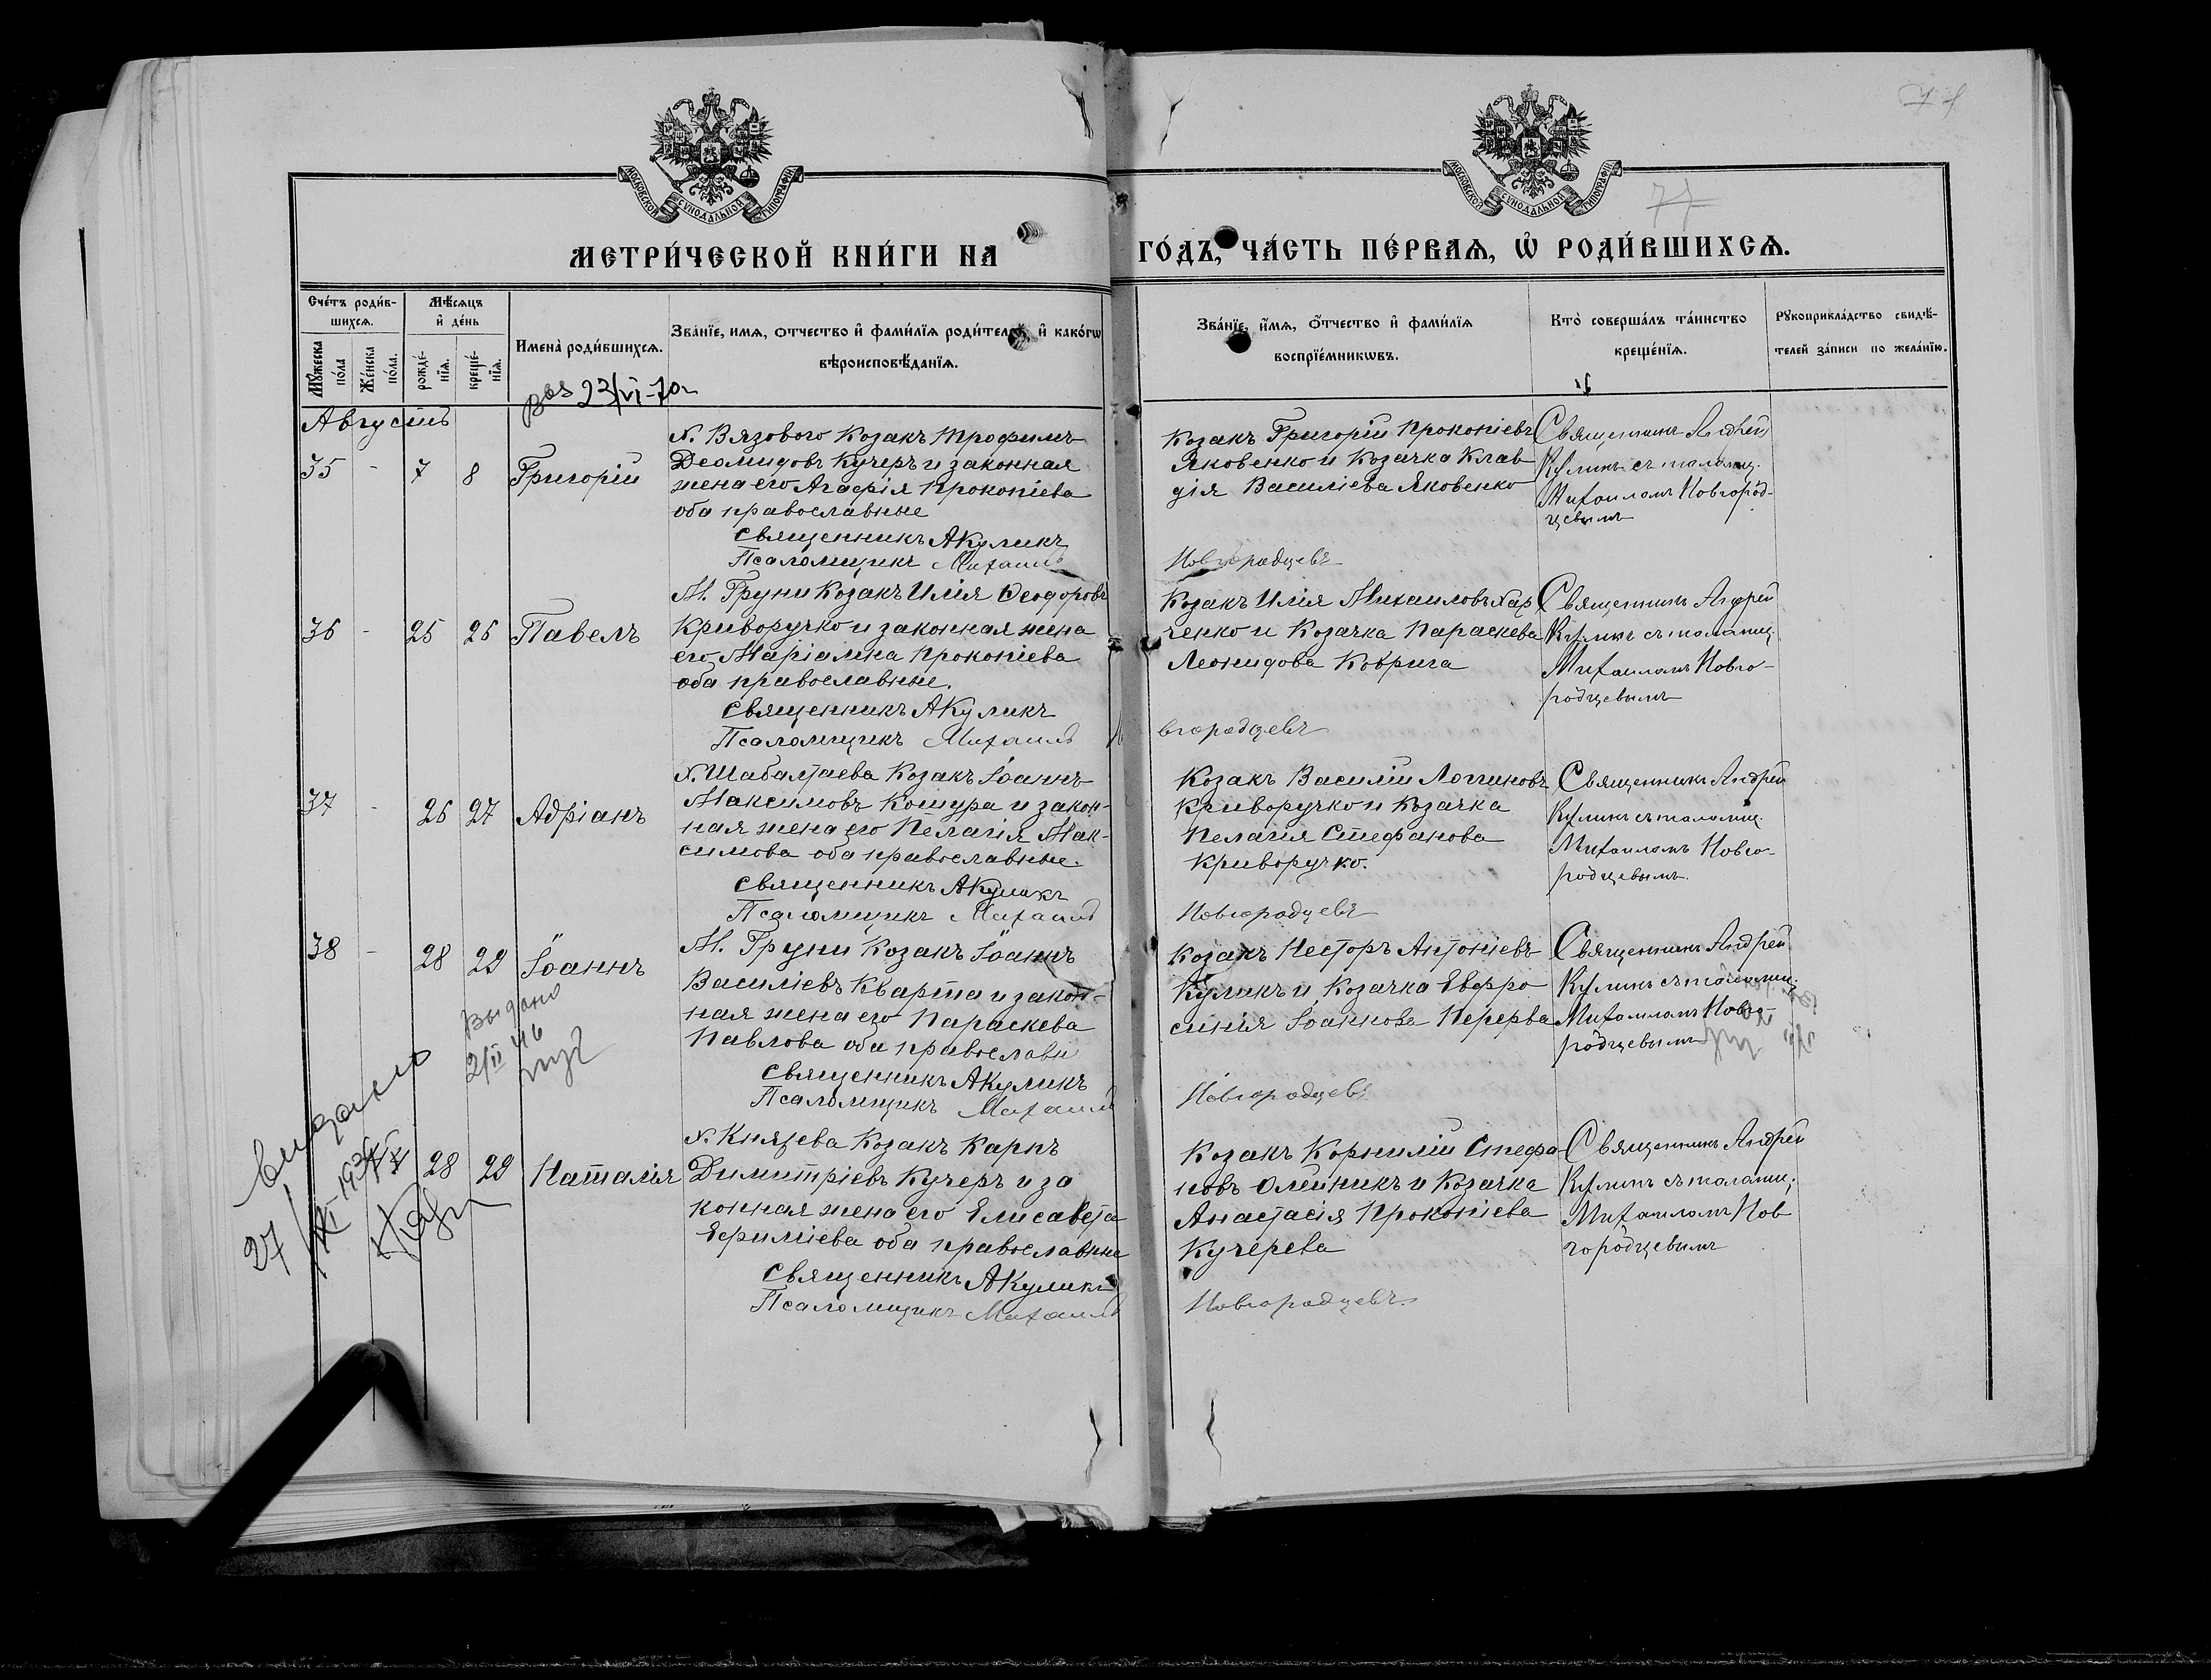 71
77
МОСКОВСКОЙ СУНОДАЛЬНОЙ ТИПОГРАФІИ
МОСКОВСКОЙ СУНОДАЛЬНОЙ ТИПОГРАФІИ
МЕТРИ́ЧЕСКОЙ КНИ́ГИ НА
ГО́ДЪ, ЧА́СТЬ ПЕ́РВАѦ, Ѡ҆ РОДИ́ВШИХСѦ.
Сче́тъ роди́в-
шихсѧ.
Мꙋ́жеска по́ла
Же́нска по́ла.
Мѣ́сѧцъ
и҆ де́нь
рожде́-
нїѧ.
креще́-
нїѧ.
Имена̀ роди́вшихсѧ.
Зва́нїе, имѧ, отчество и҆ фами́лїѧ роди́телей, и҆ како́гѡ
вѣроисповѣ́данїѧ.
Зва́нїе, и҆́мѧ, о҆́тчество и҆ фами́лїѧ
воспрїе́мникѡвъ.
Кто̀ соверша́лъ та́инство
креще́нїѧ.
Рꙋкоприкла́дство свидѣ́-
телей за́писи по жела́нїю.
23/VI-70г
Августъ
35 - 7 8 Григорій
х. Вязового Козакъ Трофимъ
Деомидовъ Кучеръ и законная
жена его Агафія Прокопіева
оба православные
Священникъ А Куликъ
Псаломщикъ Михаилъ
Козакъ Григорій Прокопіевъ
Яковенко и Козачка Клав
дія Василіева Яковенко
Новгородцевъ
Священникъ Андрей
Куликъ съ псаломщ.
Михаиломъ Новгород-
цевымъ
36 - 25 26 Павелъ
М. Груни Козакъ Илія Ѳеодоровъ
Криворучко и законная жена
его Маріамна Прокопіева
оба православные.
Священникъ А Куликъ
Псаломщикъ Михаилъ Но
Козакъ Илія Михаиловъ Хар
ченко и Козачка Параскева
Леонидова Коврига
вгородцевъ
Священникъ Андрей
Куликъ съ псаломщ.
Михаиломъ Новго-
родцевымъ
37 - 26 27 Адріанъ
х. Шабалтаева Козакъ Іоаннъ
Максимовъ Кошура и закон-
ная жена его Пелагія Мак-
симова оба православные.
Священникъ А Куликъ
Псаломщикъ Михаилъ
Козакъ Василій Логиновъ
Криворучко и Козачка
Пелагія Стефанова
Криворучко.
Новгородцевъ
Священникъ Андрей
Куликъ съ псаломщ.
Михаиломъ Новго-
родцевымъ.
38 - 28 29 Іоаннъ
М. Груни Козакъ Іоаннъ
Василіевъ Кварта и закон-
ная жена его Параскева
Павлова оба православн
Священникъ А Куликъ
Псаломщикъ Михаилъ
Козакъ Несторъ Антоніевъ
Куликъ и Козачка Евфро
синія Іоаннова Перерва
Новгородцевъ
Священникъ Андрей
Куликъ съ псаломщ.
Михаиломъ Новго-
родцевымъ
Выдано
2/II 46
28 29 Наталія
х. Князева Козакъ Карпъ
Димитріевъ Кучеръ и за
конная жена его Елисавета
Ефиміева оба православные
Священникъ А Куликъ
Псаломщикъ Михаилъ
Козакъ Корнилій Стефа
новъ Олейникъ и Козачка
Анастасія Прокопіева
Кучерева
Новгородцевъ.
Священникъ Андрей
Куликъ съ псаломщ.
Михаиломъ Нов
городцевымъ